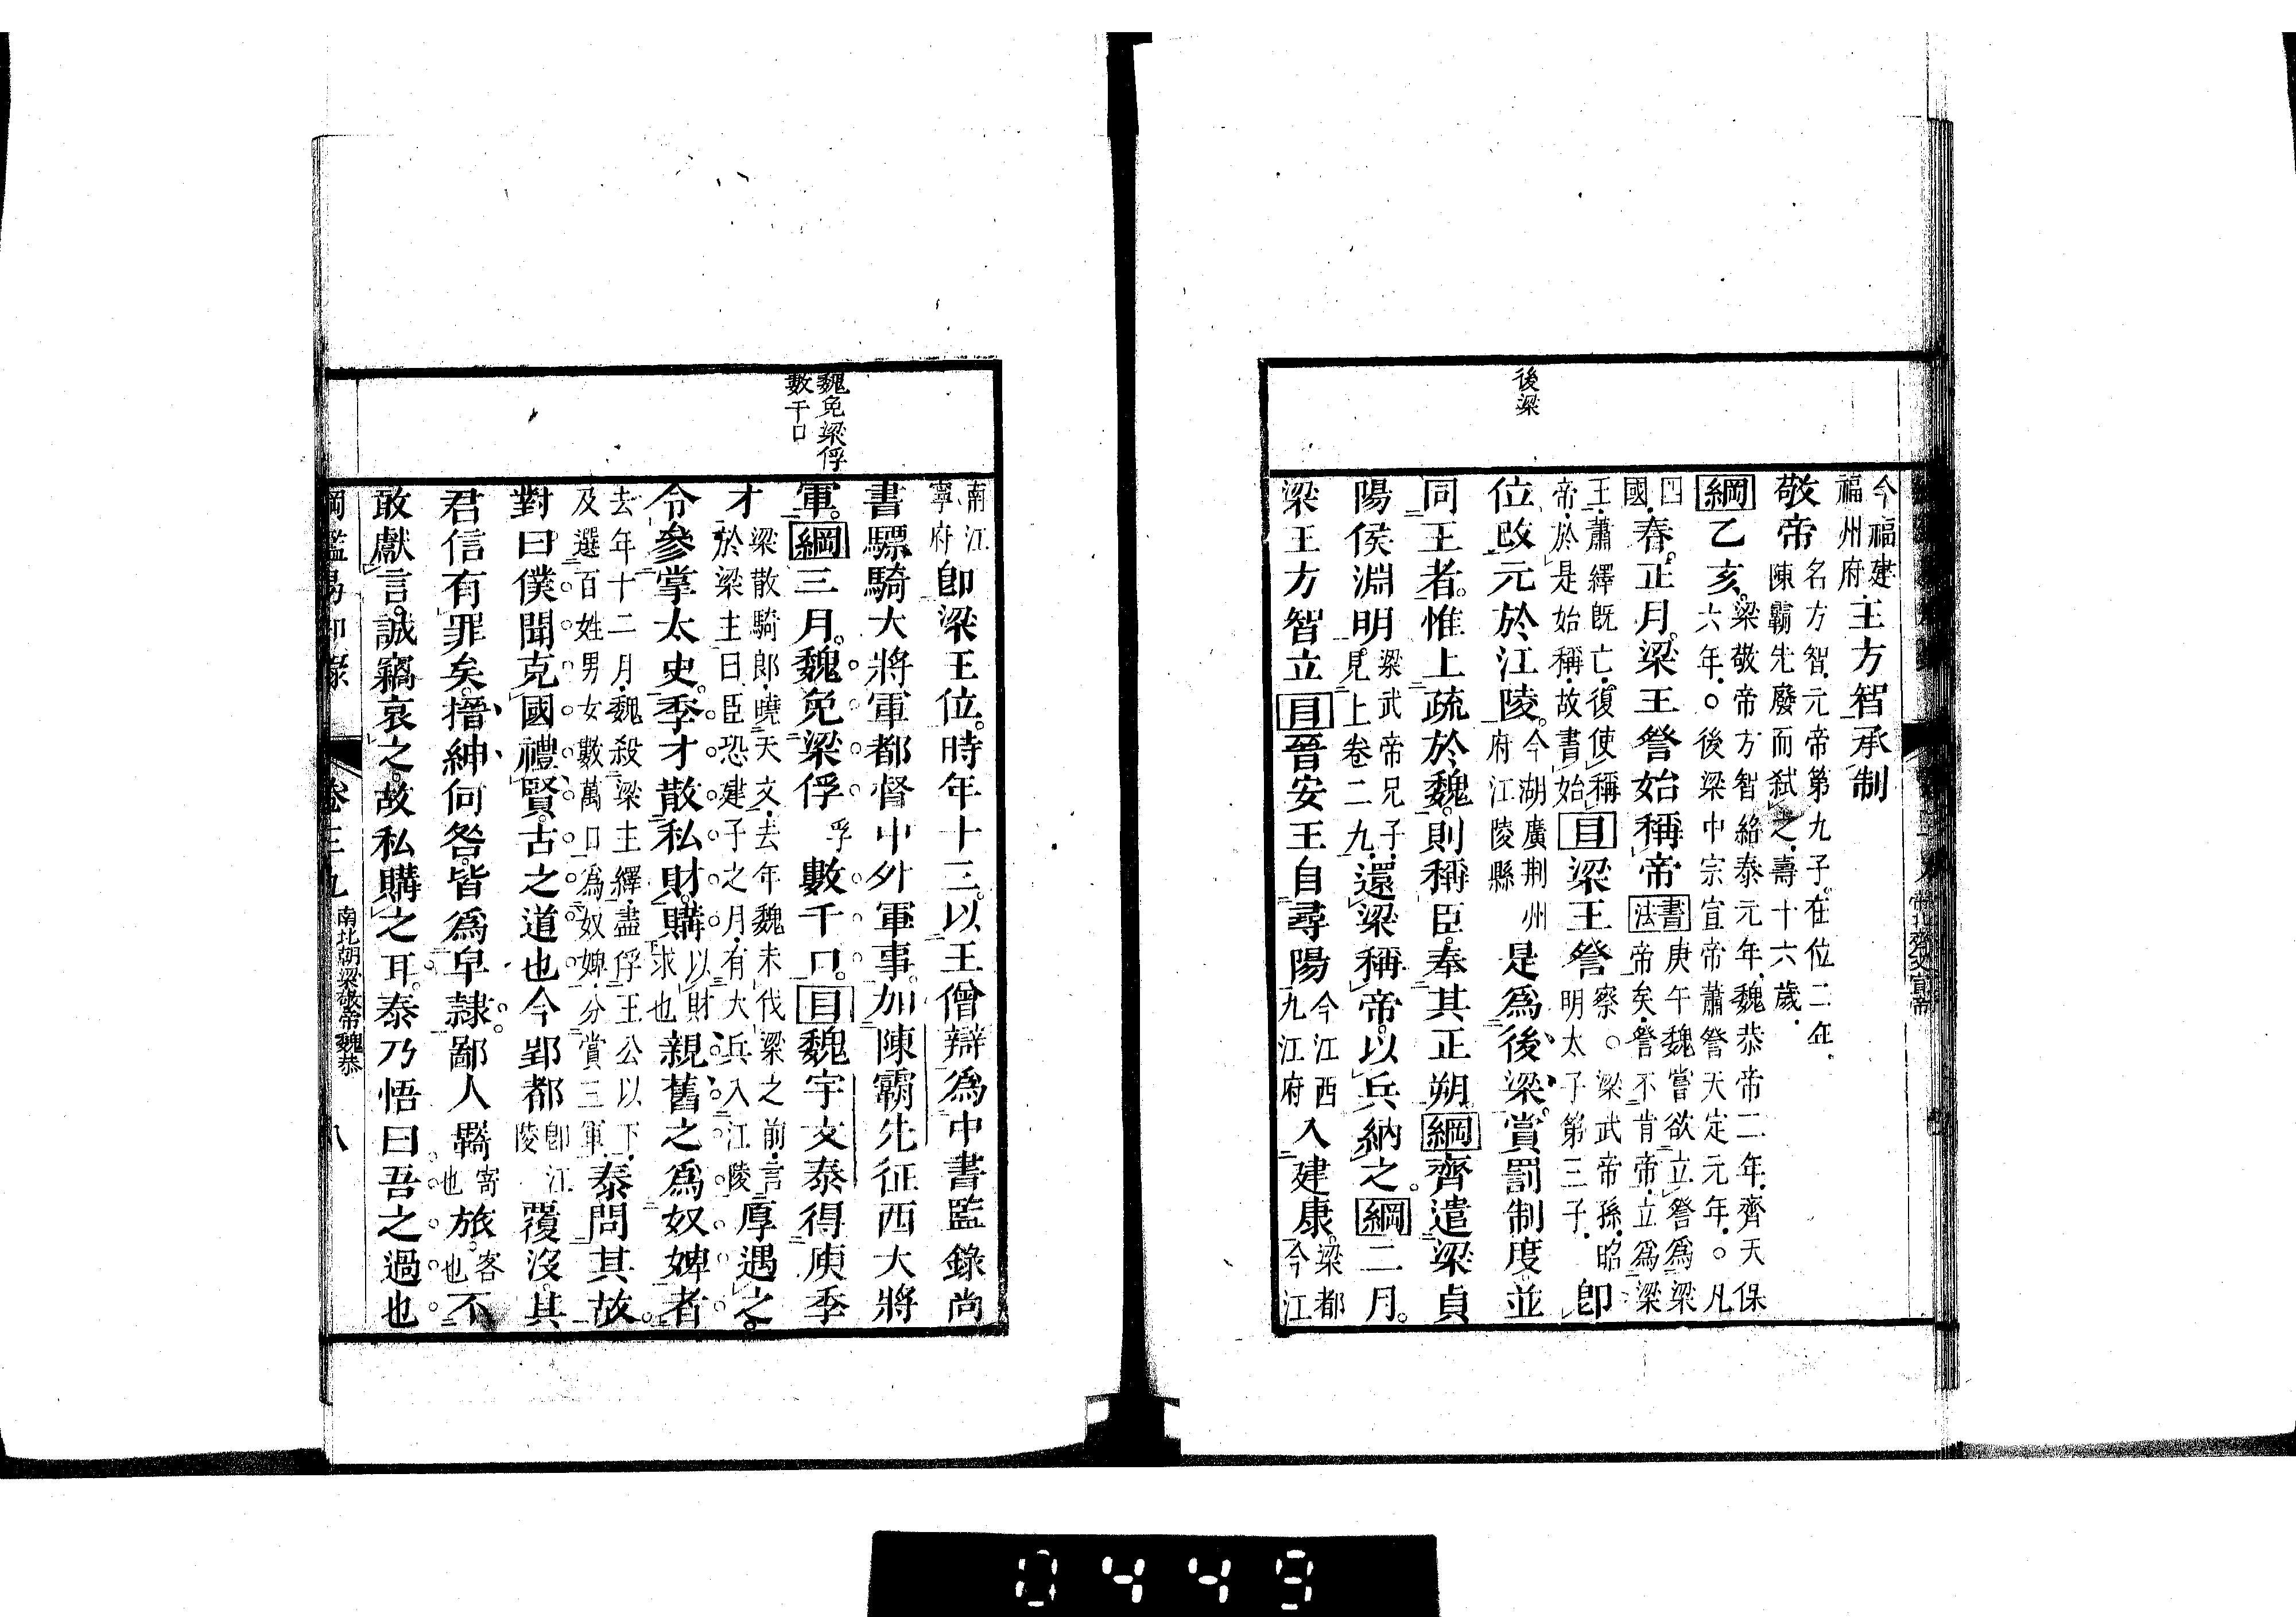 後梁
今福建福州府王方智承制
敬帝名方智元帝第九子在位二年陳霸先廢而弒之壽十六歲
綱乙亥梁敬帝方智紹泰元年魏恭帝二年齊天保六年○後梁中宗宣帝蕭詧天定元年○凡
四國春正月梁王詧始稱帝書法庚午魏嘗欲立詧爲梁帝矣詧不肯帝立爲梁
王蕭繹旣亡復使稱帝於是始稱故書始目梁王詧察○梁武帝孫昭明太子第三子卽
位改元於江陵今湖廣荆州府江陵縣是爲後梁賞罰制度並
同王者惟上疏於魏則稱臣奉其正朔綱齊遣梁貞
陽侯淵明梁武帝兄子見上卷二九還梁稱帝以兵納之綱二月
梁王方智立目晉安王自尋陽今江西九江府入建康梁都今江
魏免梁俘
數千口
南江寧府卽梁王位時年十三以王僧辯爲中書監錄尚
書驃騎大將軍都督中外軍事加陳霸先征西大將
軍綱三月魏免梁俘孚數千口目魏宇文泰得庾季
才梁散騎郎曉天文去年魏未伐梁之前言於梁主曰臣恐建子之月有大兵入江陵厚遇之
令參掌太史季才散私財購以財求也親舊之爲奴婢者
去年十二月魏殺梁主繹盡俘王公以下及選百姓男女數萬口爲奴婢分賞三軍泰問其故
對曰僕聞克國禮賢古之道也今郢都卽江陵覆沒其
君信有罪矣搢紳何咎皆爲皁隸鄙人羇寄也旅客也不
敢獻言誠竊哀之故私購之耳泰乃悟曰吾之過也
綱鑑易知錄 卷三九 南北朝梁敬帝魏恭 八
0449